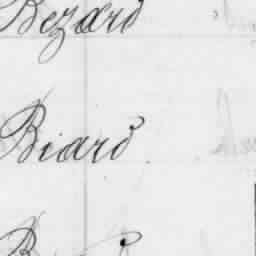 Bezard
Biard